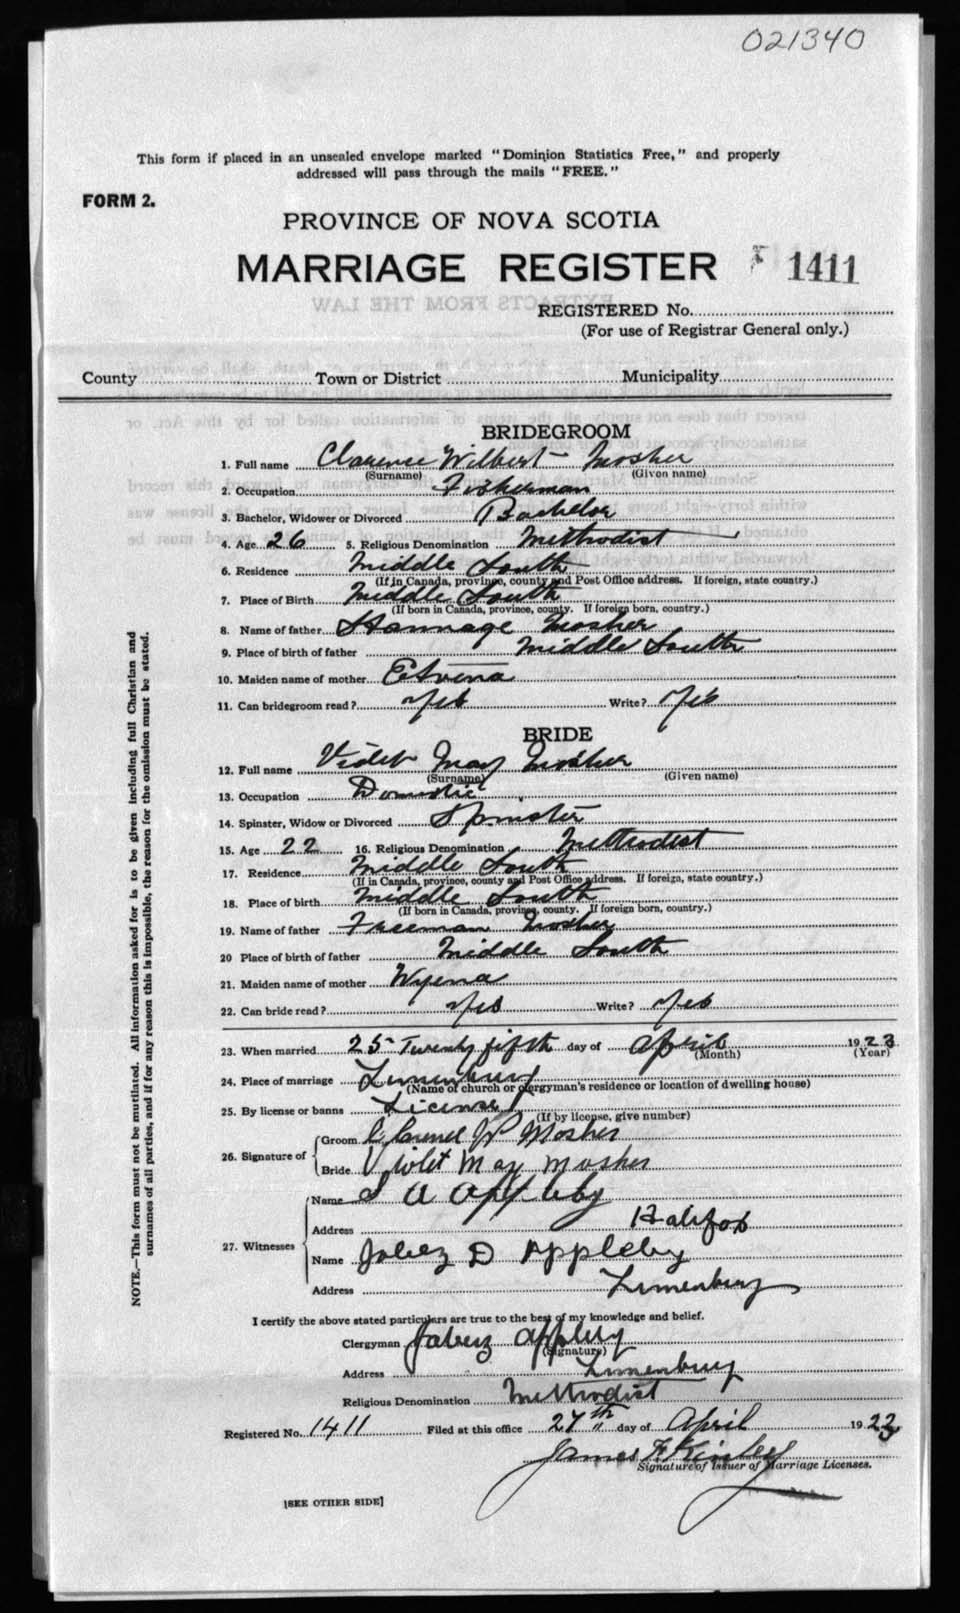 021340
This form if placed in an unsealed envelope marked "Dominion Statistics Free," and properly
addressed will pass through the mails "FREE."
FORM 2.
PROVINCE OF NOVA SCOTIA
MARRIAGE REGISTER 1411
EXTRACTS FROM THE LAW
REGISTERED No.
(For use of Registrar General only.)
County Town or District Municipality
BRIDEGROOM
1. Full name Clarence Wilbert Mosher
(Surname) (Given name)
2. Occupation Fisherman
3. Bachelor, Widower or Divorced Bachelor
4. Age 26 5. Religious Denomination Methodist
6. Residence Middle South
(If in Canada, province, county and Post Office address. If foreign, state country.)
7. Place of Birth Middle South
(If born in Canada, province, county. If foreign born, country.)
8. Name of father Mosher
9. Place of birth of father Middle South
10. Maiden name of mother
11. Can bridegroom read? Yes Write? Yes
BRIDE
12. Full name Violet May Mosher
(Surname) (Given name)
13. Occupation Domestic
14. Spinster, Widow or Divorced Spinster
15. Age 22 16. Religious Denomination Methodist
17. Residence Middle South
(If in Canada, province, county and Post Office address. If foreign, state country.)
18. Place of birth Middle South
(If born in Canada, province, county. If foreign born, country.)
19. Name of father Freeman Mosher
20 Place of birth of father Middle South
21. Maiden name of mother Wyena
22. Can bride read? Yes Write? Yes
23. When married 25 Twenty fifth day of April 1923
(Month) (Year)
24. Place of marriage Lunenburg
(Name of church or clergyman's residence or location of dwelling house)
25. By license or banns License
(If by license, give number)
26. Signature of Groom Clarence W Mosher
Bride Violet May Mosher
27. Witnesses Name S A Appleby
Address Halifax
Name Jabez D Appleby
Address Lunenburg
I certify the above stated particulars are true to the best of my knowledge and belief.
Clergyman Jabez Appleby
(Signature)
Address Lunenburg
Religious Denomination Methodist
Registered No. 1411 Filed at this office 27th day of April 1923
James F Kinley
Signature of Issuer of Marriage Licenses.
[SEE OTHER SIDE]
NOTE.—This form must not be mutilated. All information asked for is to be given including full Christian and
surnames of all parties, and if for any reason this is impossible, the reason for the omission must be stated.